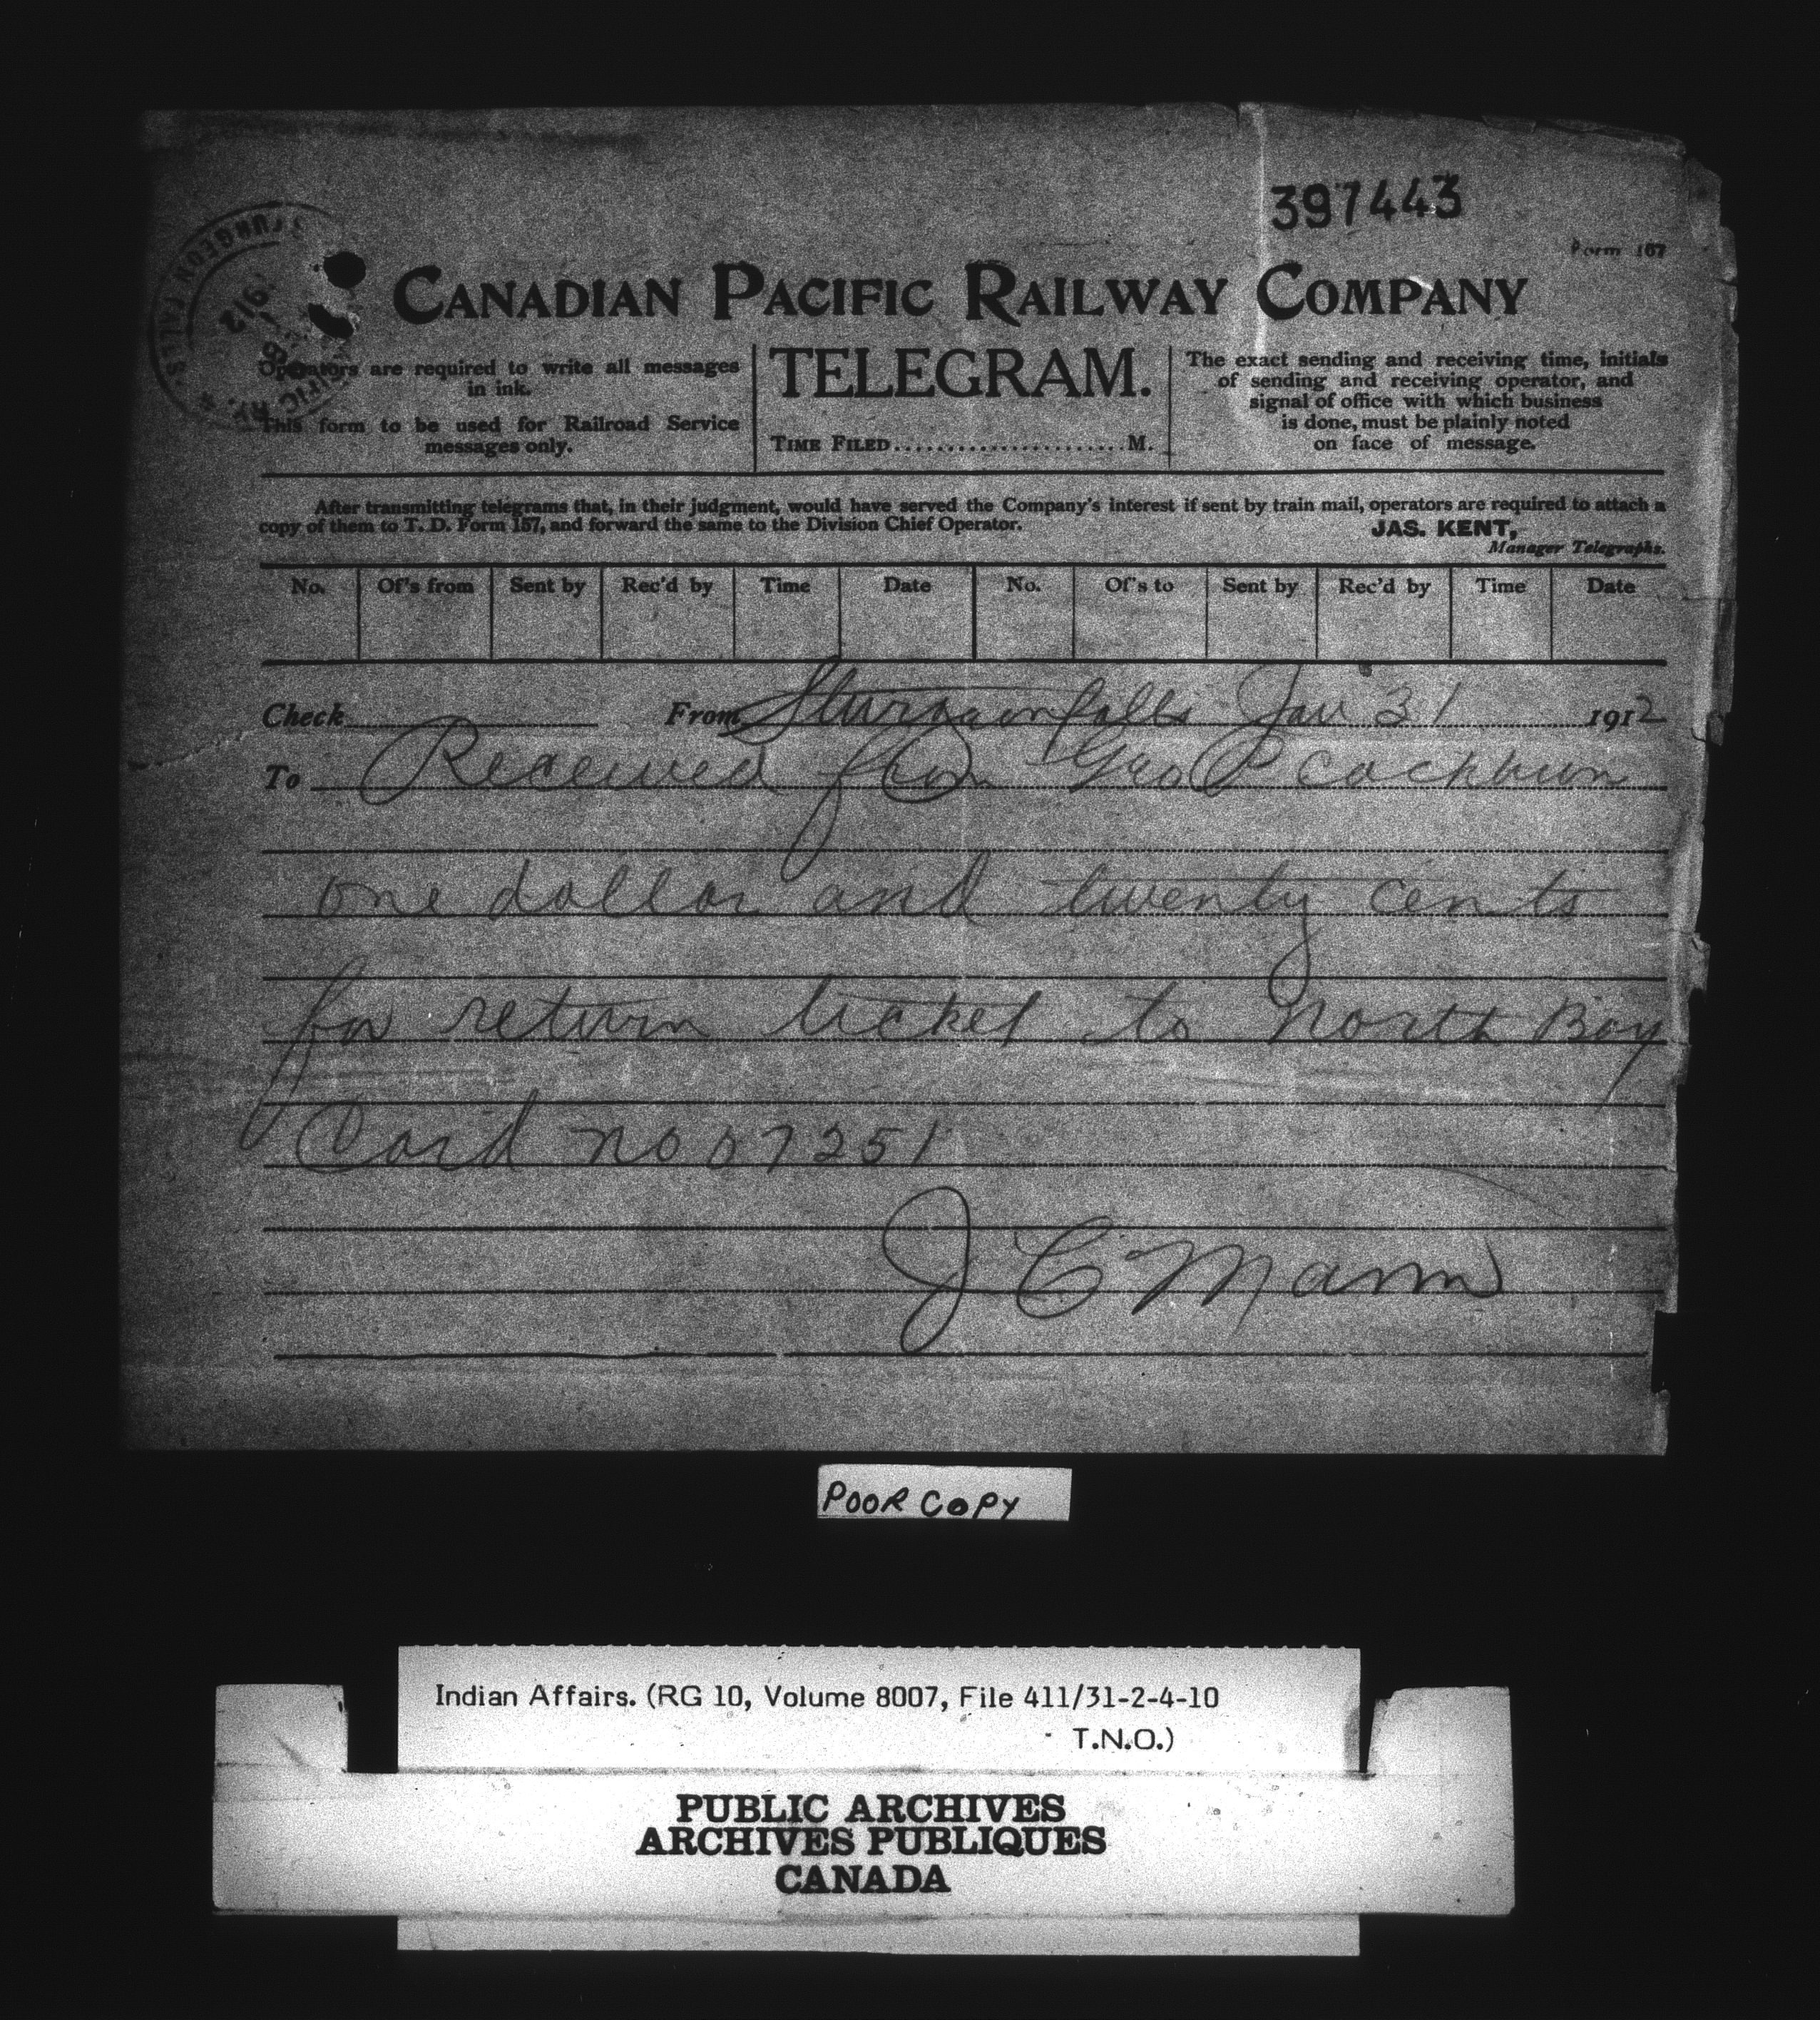 397443
Form 167
STURGEON FALLS
CANADIAN PACIFIC RAILWAY COMPANY
TELEGRAM.
Operators are required to write all messages
in ink.
This form to be used for Railroad Service
messages only.
TIME FILED.....................M.
The exact sending and receiving time, initials
of sending and receiving operator, and
signal of office with which business
is done, must be plainly noted
on face of message.
After transmitting telegrams that, in their judgment, would have served the Company's interest if sent by train mail, operators are required to attach a
copy of them to T. D. Form 157, and forward the same to the Division Chief Operator.
JAS. KENT,
Manager Telegraphs.
No. Of's from Sent by Rec'd by Time Date No. Of's to Sent by Rec'd by Time Date
Check From Sturgeon falls Jan 31 1912
To Received from Geo P cockburn
one dollar and twenty cents
for return ticket to North Bay
Card no 57251
J C Mann
POOR COPY
Indian Affairs. (RG 10, Volume 8007, File 411/31-2-4-10
- T.N.O.)
PUBLIC ARCHIVES
ARCHIVES PUBLIQUES
CANADA